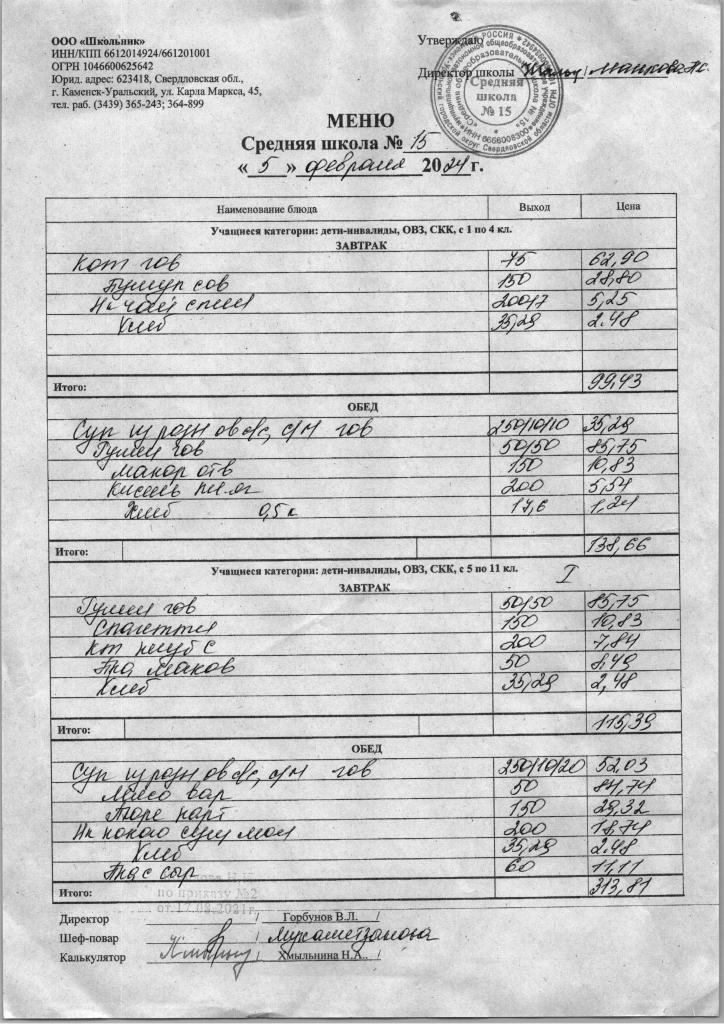 ООО «Школьник»
ИНН/КПП 6612014924/661201001
ОГРН 1046600625642
Юрид. адрес: 623418, Свердловская обл.,
г. Каменск-Уральский, ул. Карла Маркса, 45,
тел. раб. (3439) 365-243; 364-899
Утверждаю
Директор школы
Средняя
школа
№ 15
МЕНЮ
Средняя школа № 15
« 5 » февраля 2024 г.
Наименование блюда Выход Цена
Учащиеся категории: дети-инвалиды, ОВЗ, СКК, с 1 по 4 кл.
ЗАВТРАК
Кот гов 75 62,90
150 28,80
200/7 5,25
Хлеб 35,29 2.48
Итого: 99,43
ОБЕД
Суп из розн ов с/с, с/м гов 250/10/10 35,29
Гуляш гов 50/50 85,75
Макар отв 150 10,83
Кисель 200 5,54
Хлеб 0,5 к 17,6 1,24
Итого: 138,66
Учащиеся категории: дети-инвалиды, ОВЗ, СКК, с 5 по 11 кл. I
ЗАВТРАК
Гуляш гов 50/50 85,75
Спагетти 150 10,83
200 7,84
50 8,49
Хлеб 35,29 2,48
Итого: 115,39
ОБЕД
Суп из розн ов с/с, с/м гов 250/10/20 52,03
Мясо вар 50 84,74
Пюре карт 150 29,32
200 18,74
Хлеб 35,29 2.48
сыр 60 11,11
Итого: 313,81
по приказу №2
от 17.08.2021г.
Директор / Горбунов В.Л. /
Шеф-повар / Мухаметзянова
Калькулятор / Хмыльнина Н.А.. /